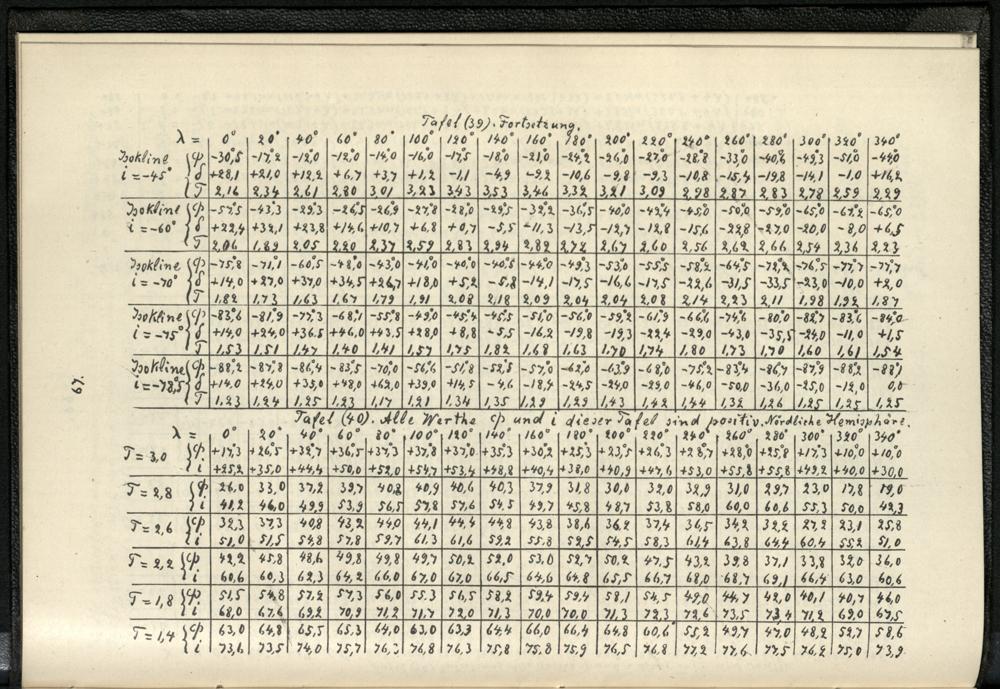 Tafel (39). Fortsetzung.
λ = 0° 20° 40° 60° 80° 100° 120° 140° 160° 180° 200° 220° 240° 260° 280° 300° 320° 340°
Isokline φ -30,5 -17,2 -12,0 -12,0 -14,0 -16,0 -17,5 -18,0 -21,0 -24,2 -26,0 -27,0 -28,8 -33,0 -40,6 -49,3 -51,0 -44,0
i = -45° δ +28,1 +21,0 +12,2 +6,7 +3,7 +1,2 -1,1 -4,9 -9,2 -10,6 -9,8 -9,3 -10,8 -15,4 -19,8 -14,1 -1,0 +16,2
T 2,16 2,34 2,61 2,80 3,01 3,23 3,43 3,53 3,46 3,32 3,21 3,09 2,98 2,87 2,83 2,78 2,59 2,29
Isokline φ -57,5 -43,3 -29,3 -26,5 -26,9 -27,8 -28,0 -29,5 -32,2 -36,5 -40,0 -42,4 -45,0 -50,0 -59,0 -65,0 -67,2 -65,0
i = -60° δ +22,4 +32,1 +23,8 +14,6 +10,7 +6,8 +0,7 -5,5 -11,3 -13,5 -12,7 -12,8 -15,6 -22,8 -27,0 -20,0 -8,0 +6,5
T 2,06 1,89 2,05 2,20 2,37 2,59 2,83 2,94 2,89 2,72 2,67 2,60 2,56 2,62 2,66 2,54 2,36 2,23
Isokline φ -75,8 -71,1 -60,5 -48,0 -43,0 -41,0 -40,0 -40,5 -44,0 -49,3 -53,0 -55,5 -58,2 -64,5 -72,2 -76,5 -77,7 -77,7
i = -70° δ +14,0 +27,0 +37,0 +34,5 +26,7 +18,0 +5,2 -5,8 -14,1 -17,5 -16,6 -17,5 -22,6 -31,5 -33,5 -23,0 -10,0 +2,0
T 1,82 1,73 1,63 1,67 1,79 1,91 2,08 2,18 2,09 2,04 2,04 2,08 2,14 2,23 2,11 1,98 1,92 1,87
Isokline φ -83,6 -81,9 -77,3 -68,1 -55,8 -49,0 -45,4 -45,5 -51,0 -56,0 -59,2 -61,9 -66,6 -74,6 -80,0 -82,7 -83,6 -84,0
i = -75° δ +14,0 +24,0 +36,5 +46,0 +43,5 +28,0 +8,8 -5,6 -16,2 -19,8 -19,3 -22,4 -29,0 -43,0 -35,5 -24,0 -11,0 +1,5
T 1,53 1,51 1,47 1,40 1,41 1,57 1,75 1,82 1,68 1,63 1,70 1,74 1,80 1,73 1,70 1,60 1,61 1,54
Isokline φ -88,2 -87,8 -86,4 -83,5 -70,0 -56,6 -51,8 -52,5 -57,0 -62,0 -63,9 -68,0 -75,2 -83,4 -86,7 -87,9 -88,2 -88,1
i = -78,5 δ +14,0 +24,0 +35,0 +48,0 +62,0 +39,0 +14,5 -4,6 -18,4 -24,5 -24,0 -29,0 -46,0 -50,0 -36,0 -25,0 -12,0 0,0
T 1,23 1,24 1,25 1,23 1,17 1,21 1,34 1,35 1,29 1,29 1,43 1,42 1,44 1,32 1,26 1,25 1,25 1,25
67.
Tafel (40). Alle Werthe φ und i dieser Tafel sind positiv. Nördliche Hemisphäre.
λ = 0° 20° 40° 60° 80° 100° 120° 140° 160° 180° 200° 220° 240° 260° 280° 300° 320° 340°
T = 3,0 φ +17,3 +26,5 +32,7 +36,5 +37,3 +37,8 +37,0 +35,3 +30,2 +25,3 +23,5 +26,3 +28,7 +28,0 +25,8 +17,3 +10,0 +10,0
i +25,2 +35,0 +44,4 +50,0 +52,0 +54,7 +53,4 +48,8 +40,4 +38,0 +40,9 +47,6 +53,0 +55,8 +55,8 +49,2 +40,0 +30,0
T = 2,8 φ 26,0 33,0 37,2 39,7 40,8 40,9 40,6 40,3 37,9 31,8 30,0 32,0 32,9 31,0 29,7 23,0 17,8 19,0
i 41,2 46,0 49,9 53,9 56,5 57,8 57,6 54,5 49,7 45,8 48,7 53,8 58,0 60,0 60,6 55,3 50,0 42,3
T = 2,6 φ 32,3 37,3 40,8 43,2 44,0 44,1 44,4 44,8 43,8 38,6 36,2 37,4 36,5 34,2 32,2 27,2 23,1 25,8
i 51,0 51,5 54,8 57,8 59,7 61,3 61,6 59,2 55,8 52,5 54,5 58,3 61,4 63,8 64,4 60,4 55,2 51,0
T = 2,2 φ 42,2 45,8 48,6 49,8 49,8 49,7 50,2 52,0 53,0 52,7 50,2 47,5 43,2 39,8 37,1 33,8 32,0 36,0
i 60,6 60,3 62,3 64,2 66,0 67,0 67,0 66,5 64,6 64,8 65,5 66,7 68,0 68,7 69,1 66,4 63,0 60,6
T = 1,8 φ 51,5 54,8 57,2 57,3 56,0 55,3 56,5 58,2 59,4 59,4 58,1 54,5 49,0 44,7 42,0 40,1 40,7 46,0
i 68,0 67,6 69,2 70,9 71,2 71,7 72,0 71,3 70,0 70,0 71,3 72,3 72,6 73,5 73,4 71,2 69,0 67,5
T = 1,4 φ 63,0 64,8 65,5 65,3 64,0 63,0 63,3 64,4 66,0 66,4 64,8 60,6 55,2 49,7 47,0 48,2 52,7 58,6
i 73,6 73,5 74,0 75,7 76,3 76,8 76,3 75,8 75,8 75,9 76,5 76,8 77,2 77,6 77,5 76,2 75,0 73,9